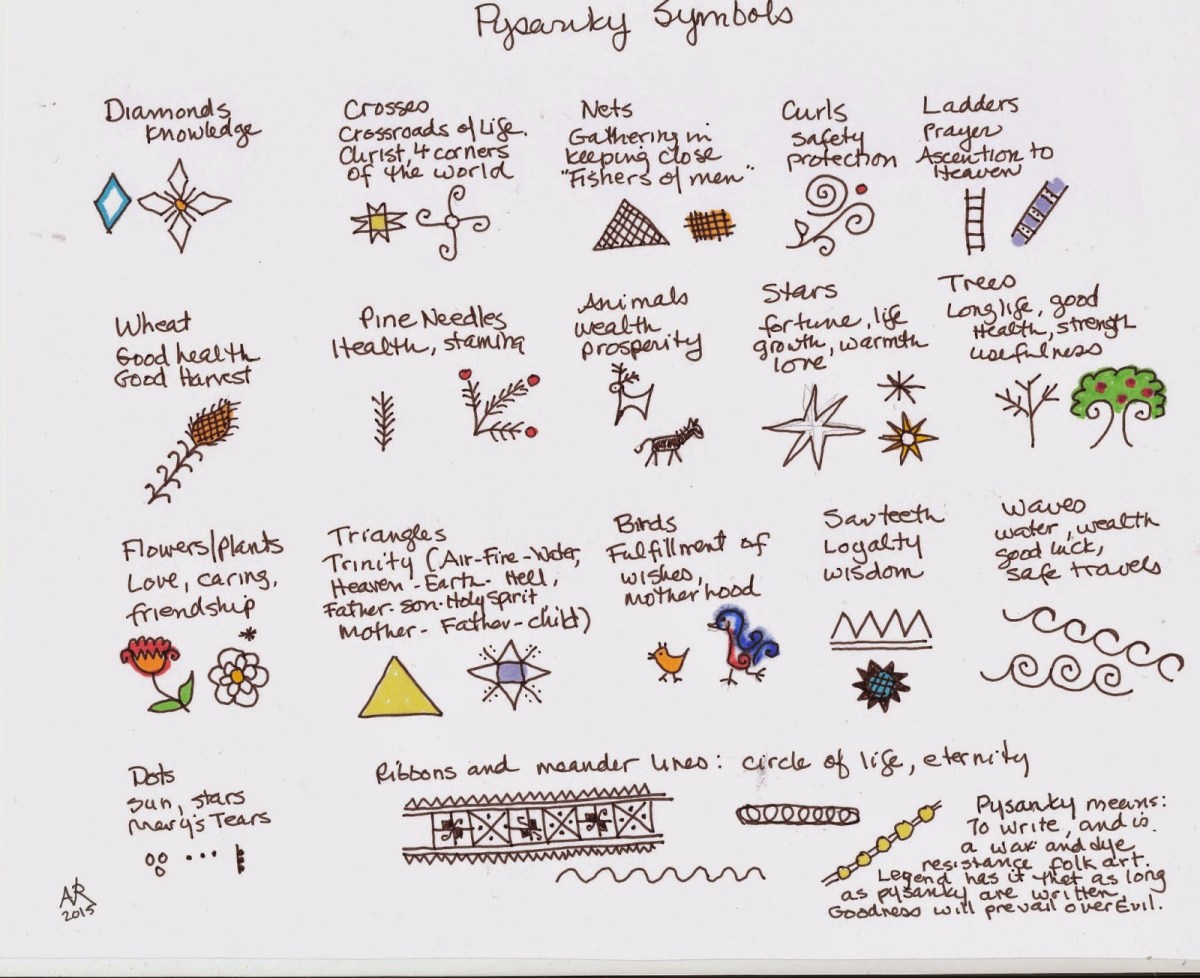 Pysanky Symbols
Diamonds
Knowledge
Crosses
Crossroads of Life.
Christ, 4 corners
of the world
Nets
Gathering in
keeping close
"Fishers of men"
Curls
safety
protection
Ladders
Prayer
Ascention to
Heaven
Wheat
Good health
Good Harvest
Pine Needles
Health, stamina
Animals
wealth
prosperity
Stars
fortune, life
growth, warmth
love
Trees
Long life, good
Health, strength
usefulness
Flowers/Plants
Love, caring,
friendship
Triangles
Trinity (Air-Fire-Water,
Heaven-Earth-Hell,
Father-Son-Holy Spirit
Mother-Father-child)
Birds
Fulfillment of
wishes,
Motherhood
Sawteeth
Loyalty
wisdom
Waves
water, wealth
good luck,
safe travels
Dots
Sun, stars
Mary's Tears
Ribbons and meander lines: circle of life, eternity
Pysanky means:
To write, and is
a wax and dye
resistance folk art.
Legend has it that as long
as pysanky are written,
Goodness will prevail over Evil.
AR
2015